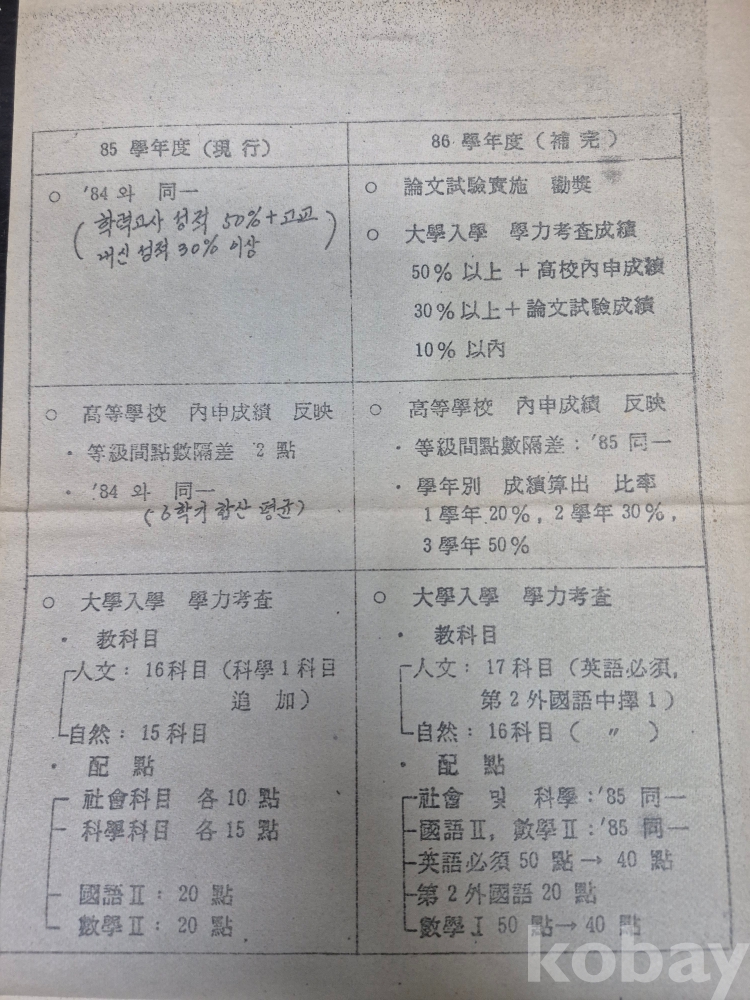 85 學年度 (現 行)
○ '84 와 同一
(학력고사 성적 50%+고교
내신 성적 30% 이상)
○ 高等學校 內申成績 反映
· 等級間點數隔差 2 點
· '84 와 同一
(6학기 합산 평균)
○ 大學入學 學力考査
· 敎科目
人文 : 16科目 (科學 1 科目
追 加)
自然 : 15 科目
· 配 點
社會科目 各 10 點
科學科目 各 15 點
國語Ⅱ : 20 點
數學Ⅱ : 20 點
86 學年度 (補 完)
○ 論文試驗實施 勸奬
○ 大學入學 學力考査成績
50% 以上 + 高校內申成績
30% 以上 + 論文試驗成績
10% 以內
○ 高等學校 內申成績 反映
· 等級間點數隔差 : '85 同一
· 學年別 成績算出 比率
1 學年 20%, 2 學年 30%,
3 學年 50%
○ 大學入學 學力考査
· 敎科目
人文 : 17 科目 (英語必須,
第 2 外國語中擇 1)
自然 : 16科目 ( 〃 )
· 配 點
社會 및 科學 : '85 同一
國語Ⅱ, 數學Ⅱ : '85 同一
英語必須 50 點 → 40 點
第 2 外國語 20 點
數學Ⅰ 50 點 → 40 點
kobay